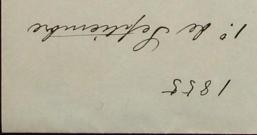 1855
1.º de Septiembre